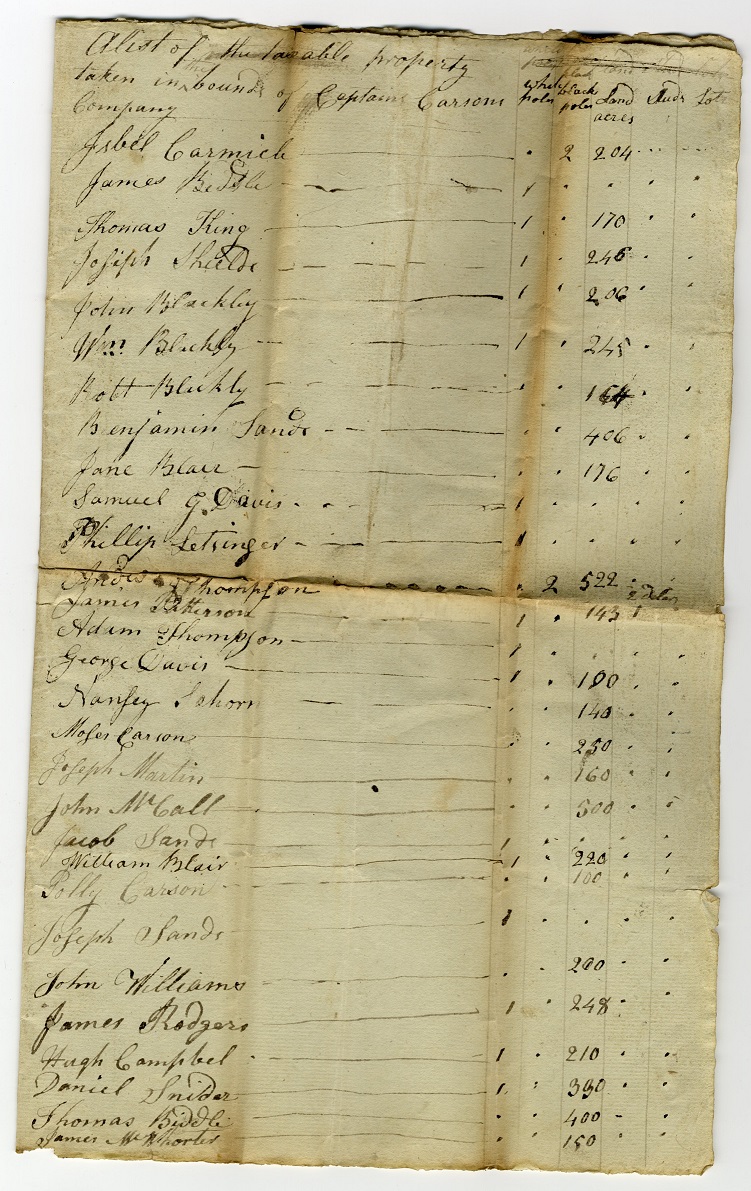 A list of the taxable property
taken in bounds of Captain Carsons white poles black poles Land acres Studs Lots
Company
Isbel Carmicle 2 204
James Biddle 1
Thomas King 1 170
Joseph Sheilds 1 246
John Blackley 1 206
Wm Blakly 1 245
Robt Blakly 164
Benjamin Sands 406
Jane Blair 176
Samuel G. Davis 1
Phillip Letsinger 1
Thompson 2 522
James Patterson 1 143 1
Adam Thompson 1
George Davis 1 100
Nansey Sahorn 140
Moses Carson 250
Joseph Martin 160
John McCall 500
Jacob Sands 1
William Blair 1 220
Polly Carson 100
Joseph Sands 1
John Williams 200
James Rodgers 1 248
Hugh Campbel 1 210
Daniel Snider 1 330
Thomas Biddle 400
James McWhorter 150